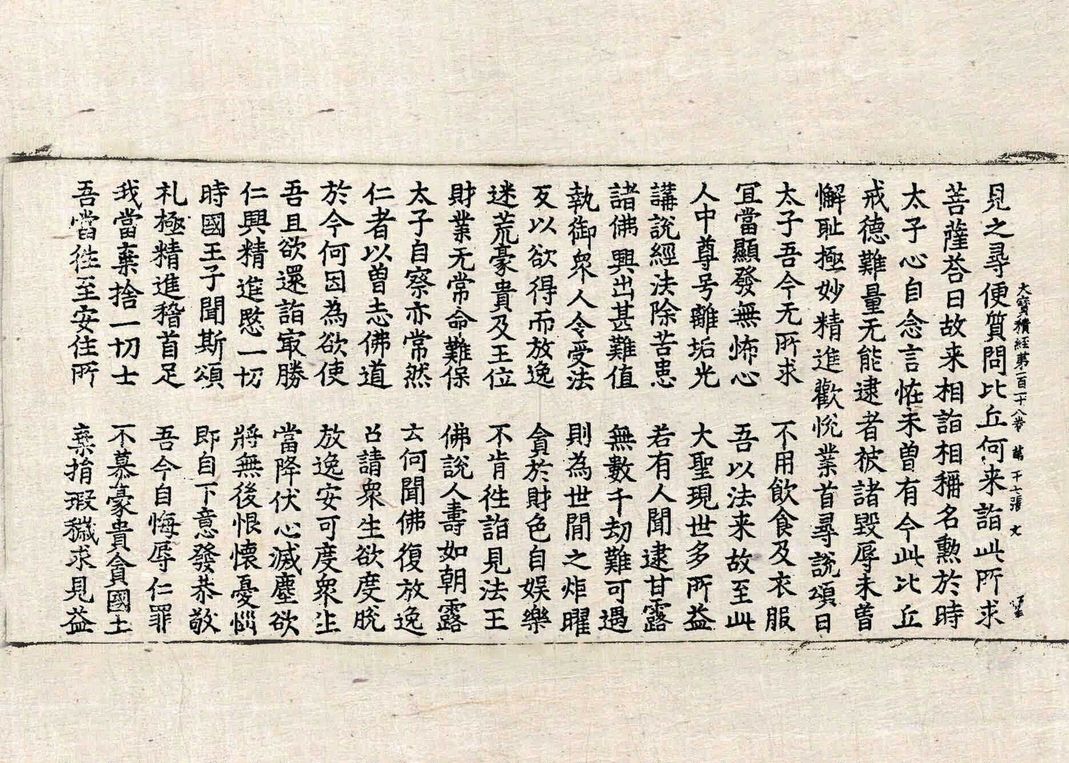 大寶積經第一百十八卷 第十七張 文
見之尋便質問比丘何来詣此所求
菩薩荅曰故来相詣相稱名勲於時
太子心自念言恠未曽有今此比丘
戒德難量无能逮者被諸毀辱未曽
懈耻極妙精進歡恱業首尋說頌曰
太子吾今无所求 不用飲食及衣服
冝當顯發無怖心 吾以法来故至此
人中尊号離垢光 大聖現世多所益
講說經法除苦患 若有人聞逮甘露
諸佛興出甚難值 無數千劫難可遇
執御衆人令受法 則為世閒之炬曜
反以欲得而放逸 貪於財色自娛樂
迷荒豪貴及王位 不肯徃詣見法王
財業无常命難保 佛說人壽如朝露
太子自察亦常然 云何聞佛復放逸
仁者以曽志佛道 召請衆生欲度脫
於今何因為欲使 放逸安可度衆生
吾且欲還詣冣勝 當降伏心滅塵欲
仁興精進愍一切 將無後恨懷憂惱
時國王子聞斯頌 即自下意發恭敬
礼極精進稽首足 吾今自悔辱仁罪
我當棄捨一切士 不慕豪貴貪國土
吾當徃至安住所 棄捐瑕穢求見益